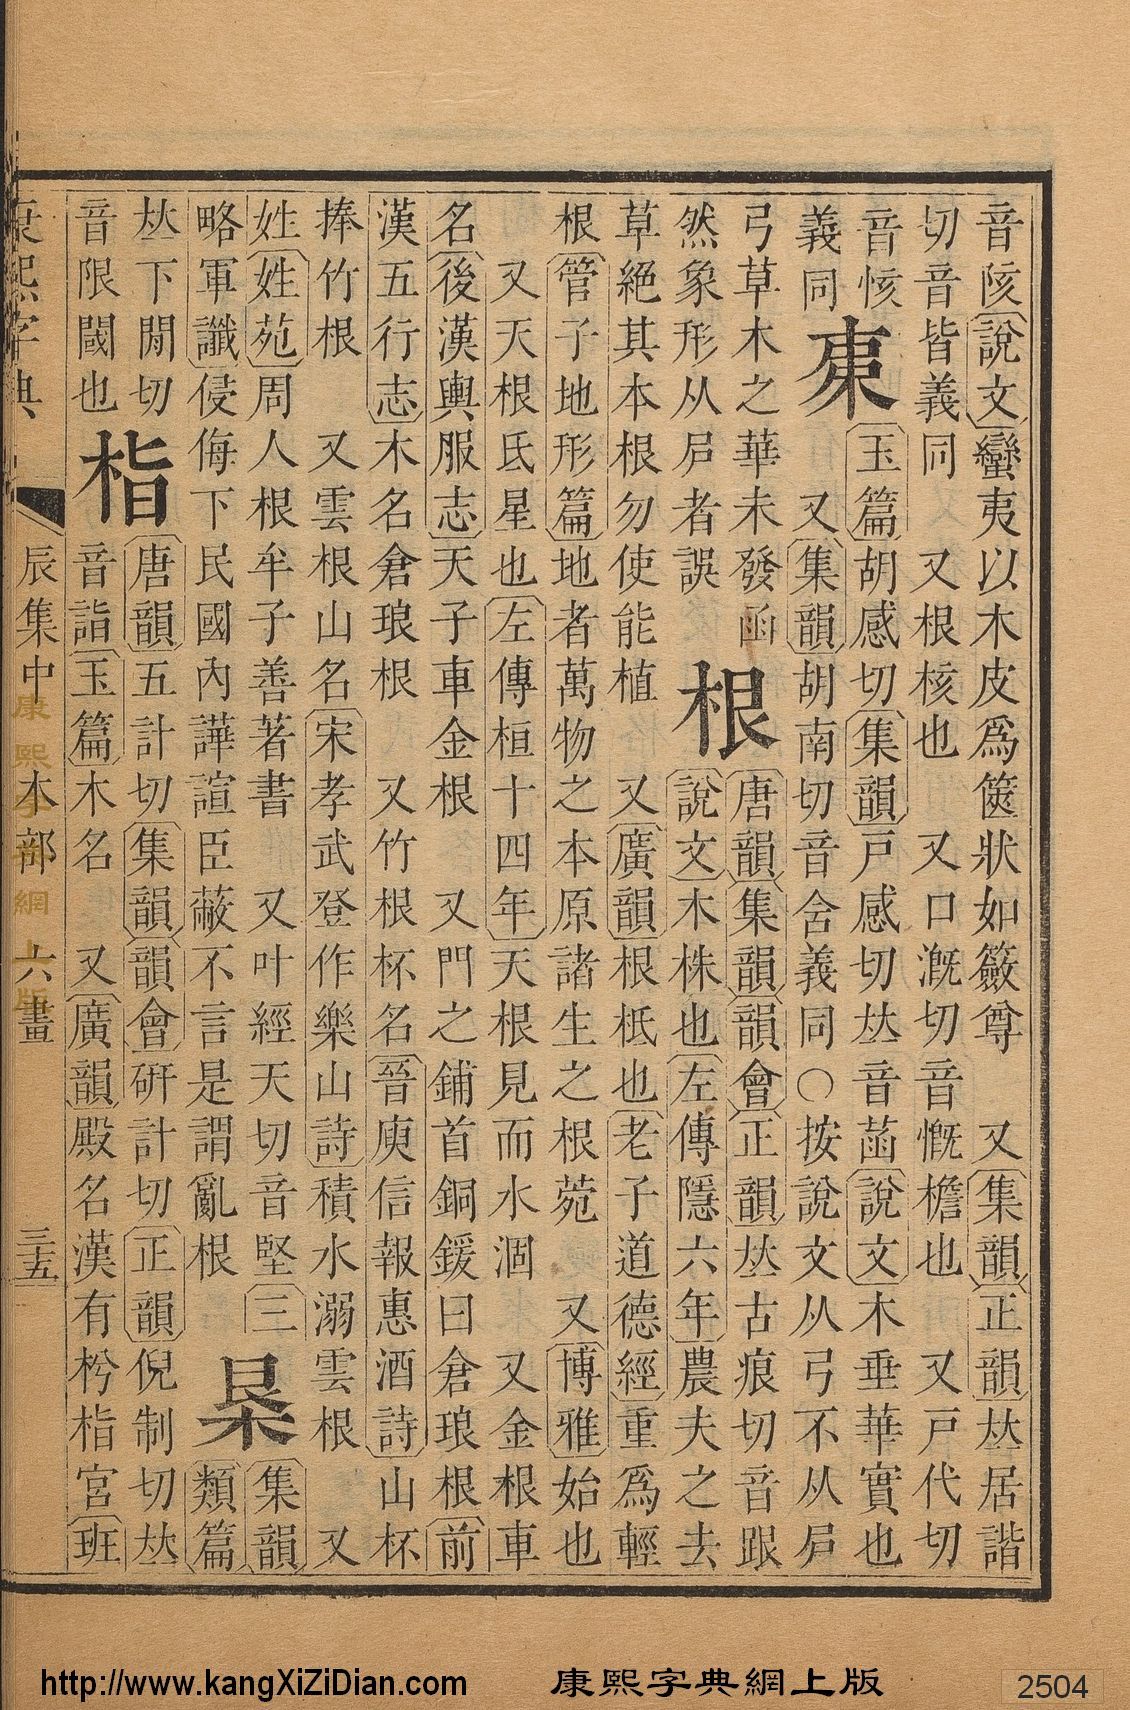 音陔說文蠻夷以木皮爲篋狀如籢尊 又集韻正韻𠀤居諧
切音皆義同 又根核也 又口漑切音慨檐也 又戶代切
音㤥
義同
玉篇胡感切集韻戶感切𠀤音菡說文木垂華實也
又集韻胡南切音含義同○按說文从弓不从㦿
弓草木之華未發函
然象形从㦿者誤
根
唐韻集韻韻會正韻𠀤古痕切音跟
說文木株也左傳隱六年農夫之去
草絕其本根勿使能植 又廣韻根柢也老子道德經重爲輕
根管子地形篇地者萬物之本原諸生之根菀 又博雅始也
又天根氐星也左傳桓十四年天根見而水涸 又金根車
名後漢輿服志天子車金根 又門之鋪首銅鍰曰倉琅根前
漢五行志木名倉琅根 又竹根杯名晉庾信報惠酒詩山杯
捧竹根 又雲根山名宋孝武登作樂山詩積水溺雲根 又
姓姓苑周人根牟子善著書 又叶經天切音堅三
略軍讖侵侮下民國內譁諠臣蔽不言是謂亂根
集韻
類篇
𠀤下閒切
音限閫也
栺
唐韻五計切集韻韻會研計切正韻倪制切𠀤
音詣玉篇木名 又廣韻殿名漢有枍栺宮班
康熙字典 辰集中 木部 六畫 三五
康熙字典網上版
http://www.kangXiZiDian.com 康熙字典網上版 2504